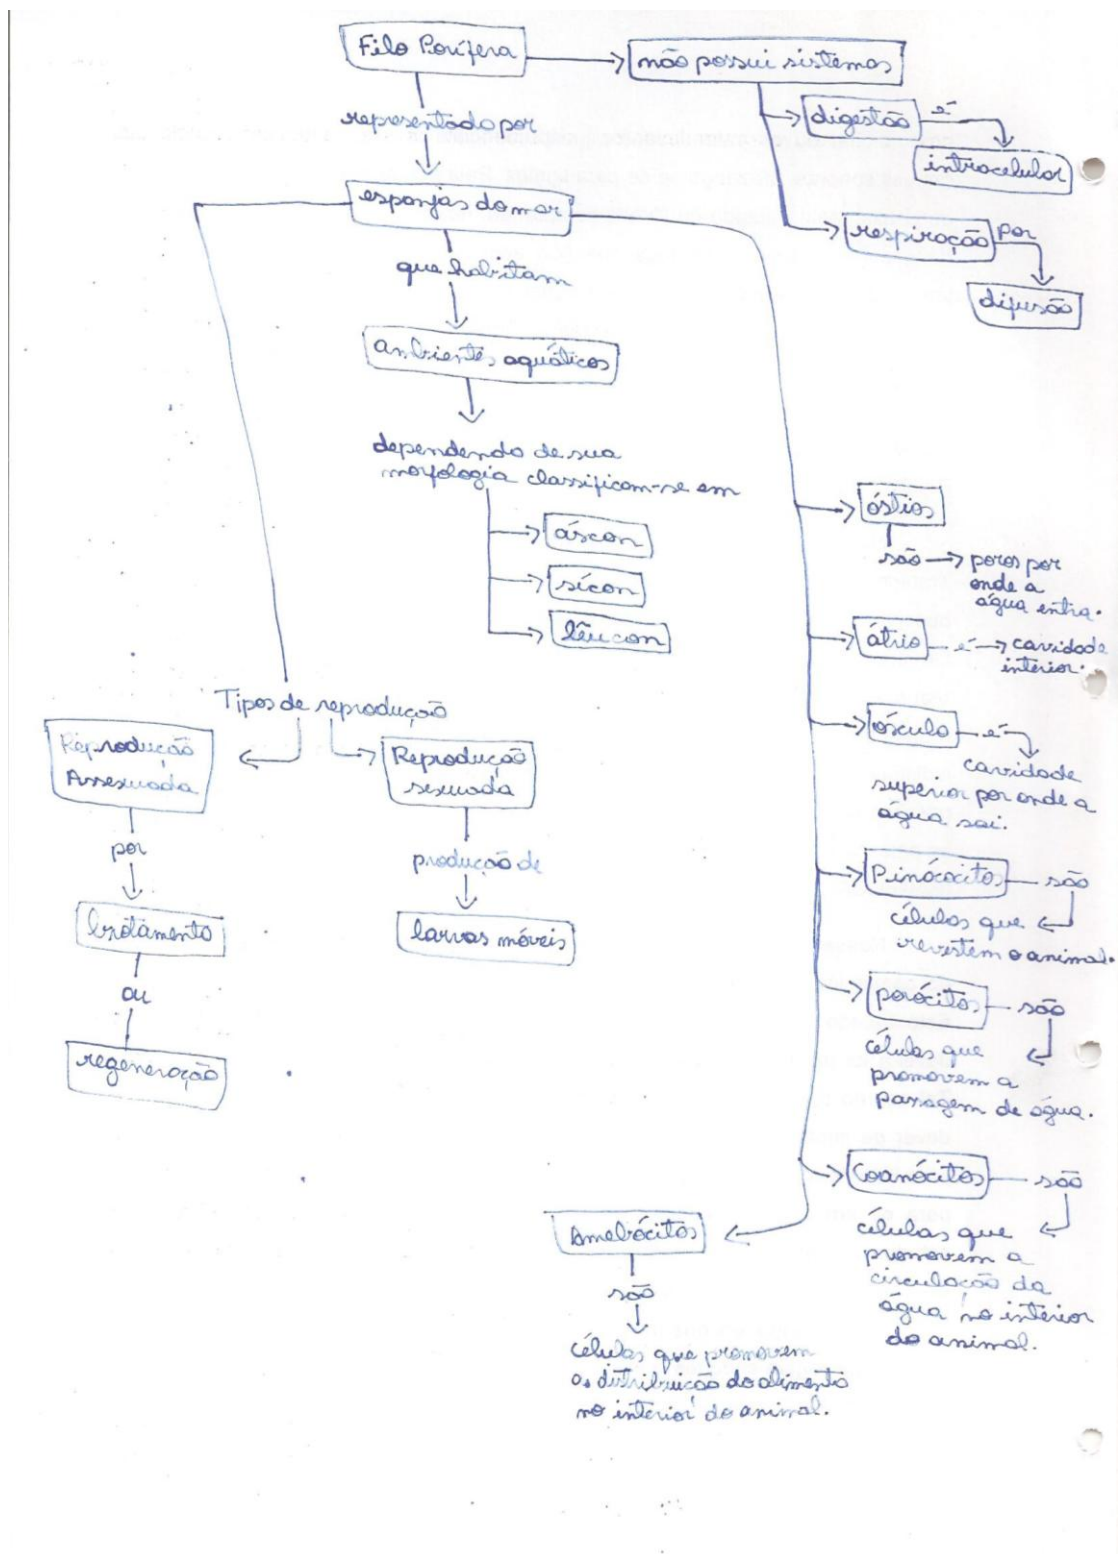 Filo Porífera
não possui sistemas
digestão
é
intracelular
respiração
por
difusão
representado por
esponjas do mar
que habitam
ambientes aquáticos
dependendo de sua
morfologia classificam-se em
áscon
sícon
lêucon
Tipos de reprodução
Reprodução
Assexuada
por
brotamento
ou
regeneração
Reprodução
sexuada
produção de
larvas móveis
óstios
são
poros por
onde a
água entra.
átrio
é
cavidade
interior.
ósculo
é
cavidade
superior por onde a
água sai.
Pinócitos
são
células que
revestem o animal.
porócitos
são
células que
promovem a
passagem de água.
Coanócitos
são
células que
promovem a
circulação da
água no interior
do animal.
Amebócitos
são
células que promovem
as ditribuição do alimento
no interior do animal.